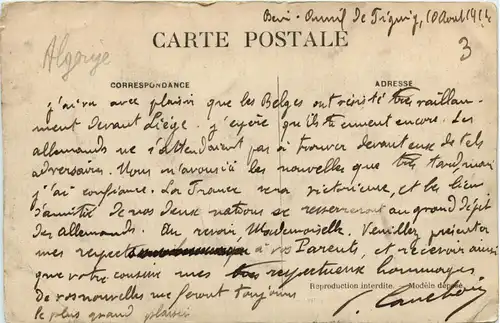 Beni-Ounif de Figuig, 10 Août 1914
CARTE POSTALE
3
Algérie
CORRESPONDANCE
ADRESSE
j'ai vu avec plaisir que les Belges ont résisté très vaillam-
ment devant Liége. j'espère qu'ils tiennent encore. Les
allemands ne s'attendaient pas à trouver devant eux de tels
adversaires. Nous n'avons ici les nouvelles que très tard, mais
j'ai confiance. La France sera victorieuse, et les liens
d'amitié de nos deux nations se resserreront au grand dépit
des Allemands. Au revoir Mademoiselle. Veuillez présenter
mes respects à vos Parents, et recevoir ainsi
que votre mes respectueux hommages
De vos nouvelles me feront toujours
le plus grand plaisir
Reproduction interdite. Modèle déposé.